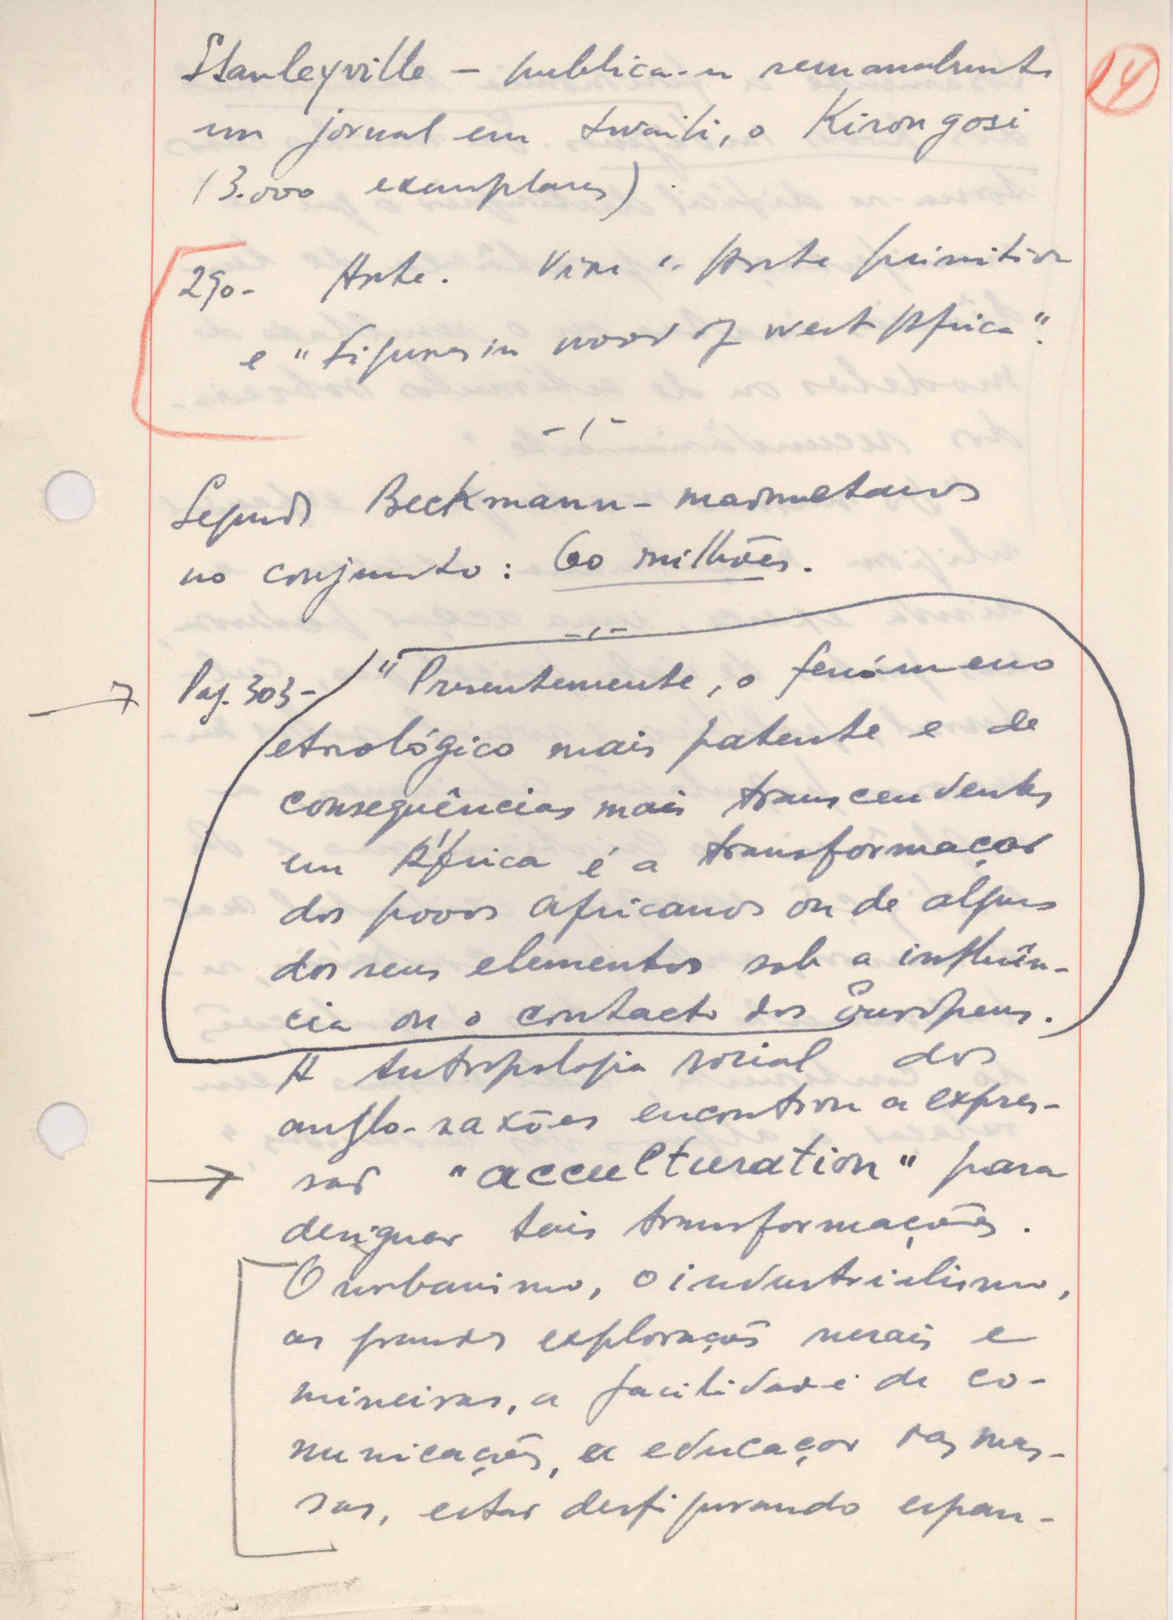 14
Stanleyville – publica-se semanalmente
um jornal em swaili, o Kirongosi
(3.000 exemplares).
290- Arte. Vide "Arte primitiva
e "Figures in wood of west Africa".
Segundo Beckmann – maometanos
no conjunto: 60 milhões.
Pag. 303 – "Presentemente, o fenómeno
etnológico mais patente e de
consequências mais transcendentes
em África é a transformação
dos povos africanos ou de alguns
dos seus elementos sob a influên-
cia ou o contacto dos Europeus.
A Antropologia social dos
anglo-saxões encontrou a expres-
são "acculturation" para
designar tais transformações.
O urbanismo, o industrialismo,
as grandes explorações rurais e
mineiras, a facilidade de co-
municações, a educação das mas-
sas, estão desfigurando espan-